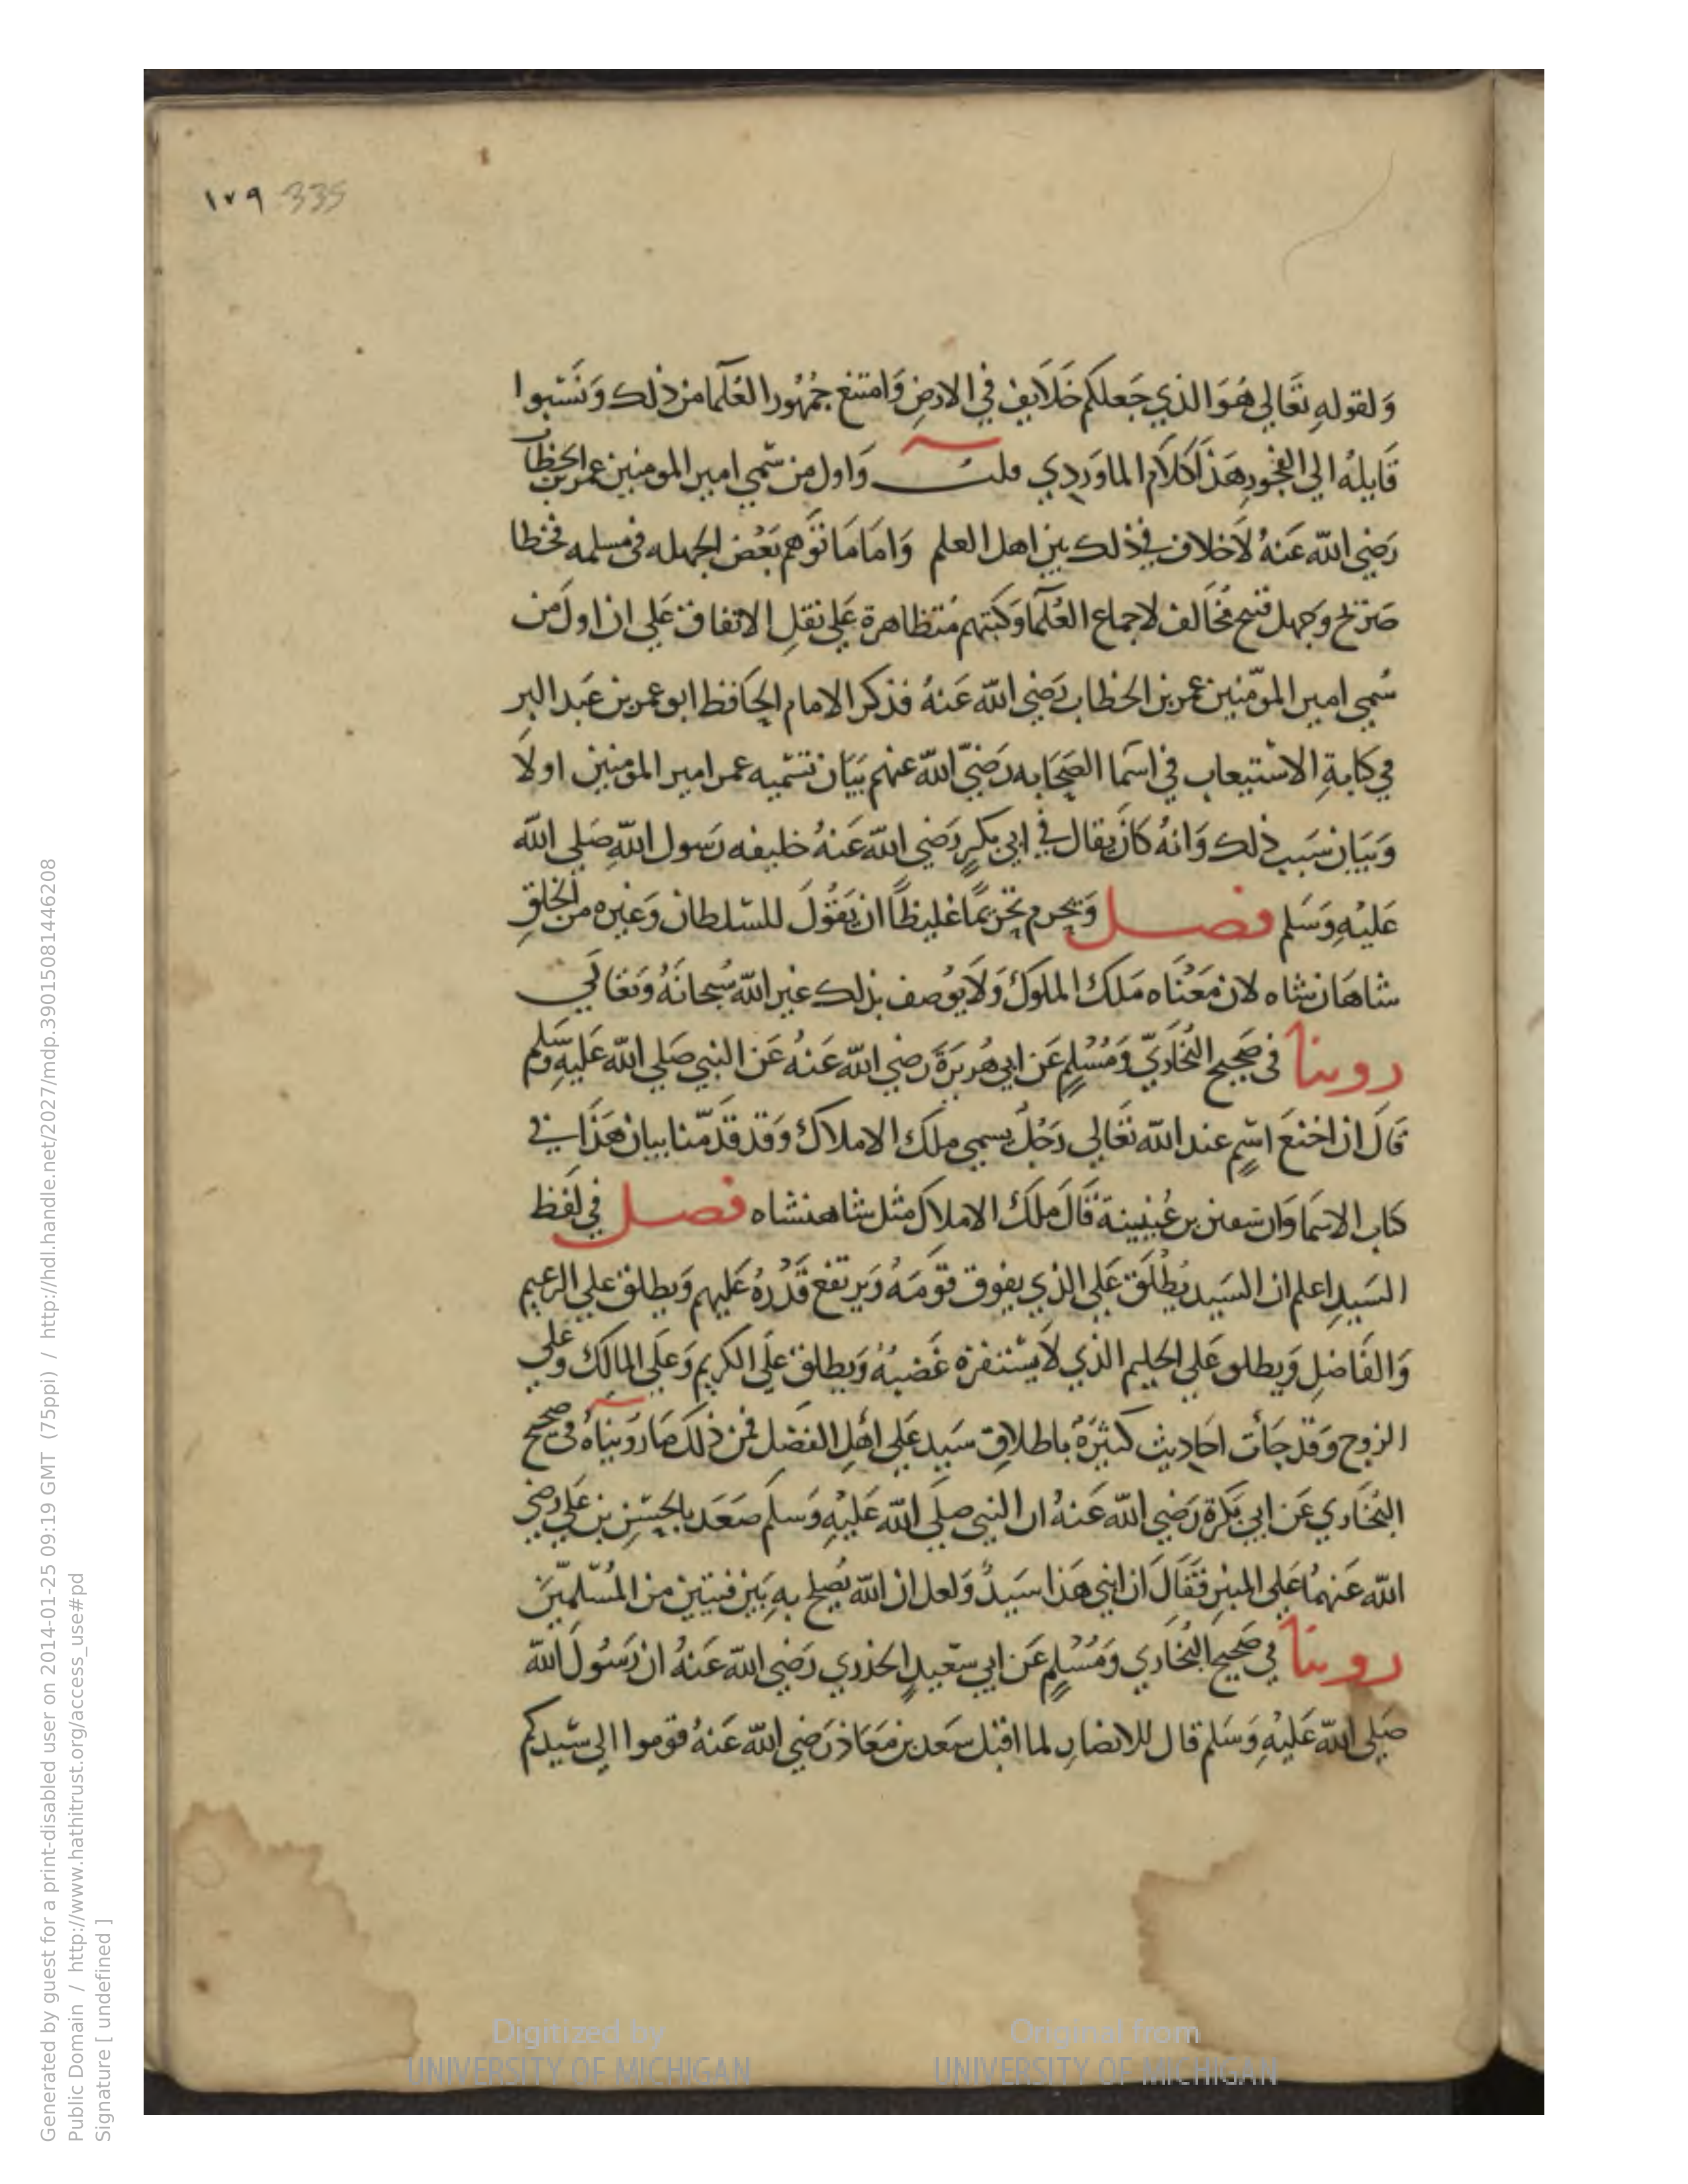 ١٧٩ 335
وَلقولهِ تعَالي هُوَ الذي جَعلكم خَلَايف في الارضِ وَامتنع جمُهُور العُلَما من ذلك وَنسَبوا
قَايلهُ الي الفجُورِ هَذَا كلَام الماوَردِي قلت وَاول من سُمي امير المومنين عمر بن الخطاب
رَضي الله عَنهُ لَاخلاف في ذلك بين اهل العلم وَامَا مَا توَهم بَعْض الجهله في مسلمه فخطا
صَرِيح وجهل قبيح مُخَالف لاجماع العُلَما وَكتبهم مُتظاهرة عَلي نقلِ الاتفاق عَلي ان اولَ من
سُمي امير الموّمنين عمر بن الخطاب رَضي الله عَنهُ فذكر الامام الحَافظ ابو عمر بن عَبد البر
في كتابهِ الاستيعاب في اسَما الصَحَابه رَضيَ الله عنهم بَيَان تسَميه عمر امير المومنين اولًا
وَبَيَان سَبب ذلك وَانهُ كانَ يقال في ابي بكرٍ رَضي الله عَنهُ خليفه رَسول اللهِ صَلي الله
عَليْهِ وَسَلم فصل وَيحرم تحريمًا غليظًا ان يَقُولَ للسلطان وَغيره من الخلقِ
شاهَان شاه لان مَعْنَاه مَلك الملوك وَلَا يوُصف بذلك غير الله سُبحانَهُ وَتعَالي
روينا في صَحيح البُخَاريّ وَمُسْلمٍ عَن ابي هُريرَةَ رَضي الله عَنهُ عَن النبي صَلي الله عَليهِ وسَلم
قَالَ ان اخنعَ اسْمٍ عند الله تعَالي رَجُلٌ يسمي ملك الاملاك وَقد قدَّمنا بيان هَذَا في
كتاب الاسَما وَان سفين بن عُيَيْينة قَالَ مَلك الاملاك مثل شاهنشاه فصل في لَفظ
السَيدِ اعلم ان السَيد يُطْلَق عَلي الذي يفوق قوَمَهُ وَيرتفع قَدْرهُ عَليهم وَيطلق علي الزعيم
وَالفَاضلِ وَيطلق عَلي الحليم الذي لَا يسْتفزه غَضبهُ وَيطلق عَلي الكريم وَعَلي المالك وعلي
الزوج وَقد جَأت احَاديث كثيرَةٌ باطلاقِ سَيد عَلي اهْل الفَضل فمن ذلك مَا رَوينَاهُ في صحيح
البُخَاري عَن ابي بَكرة رَضي الله عَنهُ ان النبي صلي الله عَليْهِ وَسلم صَعَد بالحسَنِ بن عَلي رضي
الله عَنهمُا عَلي المنبرِ فقَالَ ان ابني هَذا سَيدٌ وَلعل ان الله يُصلح بهِ بَين فئتين من المُسْلمينَ
روينا في صَحيح البُخَاري وَمُسْلمٍ عَن ابي سَعيدٍ الخدري رَضي الله عَنهُ ان رَسُولَ الله
صَلي الله عَليْهِ وَسَلم قال للانصَارِ لما اقبل سَعد بن مَعَاذ رَضي الله عَنهُ قوموا الي سَيدكم
Generated by guest for a print-disabled user on 2014-01-25 09:19 GMT (75ppi) / http://hdl.handle.net/2027/mdp.39015081446208
Public Domain / http://www.hathitrust.org/access_use#pd
Signature [ undefined ]
Digitized by
UNIVERSITY OF MICHIGAN
Original from
UNIVERSITY OF MICHIGAN